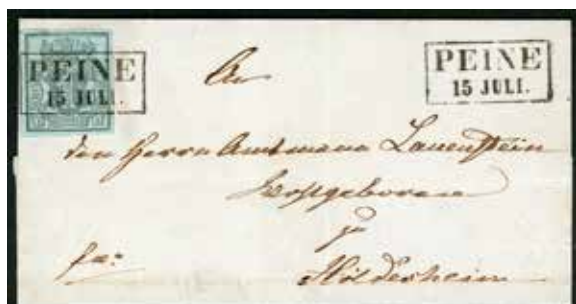 PEINE
15 JULI.
PEINE
15 JULI.
An
den Herrn Amtmann Lauenstein
Wohlgeboren
zu
Hildesheim